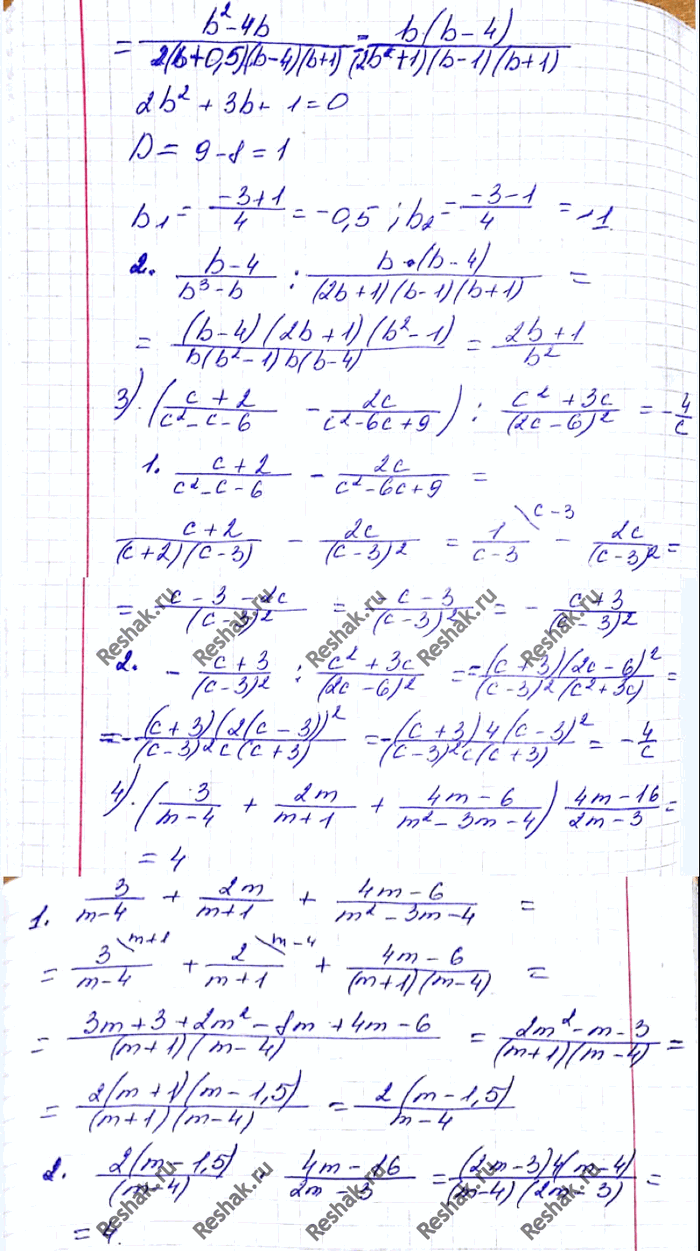 = (b² - 4b)/(2(b+0,5)(b-4)(b+1)) = b(b-4)/((2b²+1)(b-1)(b+1))
2b² + 3b + 1 = 0
D = 9 - 8 = 1
b₁ = (-3+1)/4 = -0,5 ; b₂ = (-3-1)/4 = -1.
2. (b-4)/(b³-b) : b·(b-4)/((2b+1)(b-1)(b+1)) =
= (b-4)(2b+1)(b²-1)/(b(b²-1)b(b-4)) = (2b+1)/b²
3). ((c+2)/(c²-c-6) - 2c/(c²-6c+9)) : (c²+3c)/(2c-6)² = -4/c
1. (c+2)/(c²-c-6) - 2c/(c²-6c+9) =
(c+2)/((c+2)(c-3)) - 2c/(c-3)² = 1/(c-3) \c-3 - 2c/(c-3)² =
= (c-3-2c)/(c-3)² = (-c-3)/(c-3)² = -(c+3)/(c-3)²
2. -(c+3)/(c-3)² : (c²+3c)/(2c-6)² = -(c+3)(2c-6)²/((c-3)²(c²+3c)) =
= -(c+3)(2(c-3))²/((c-3)²c(c+3)) = -(c+3)4(c-3)²/((c-3)²c(c+3)) = -4/c
4). (3/(m-4) + 2m/(m+1) + (4m-6)/(m²-3m-4)) (4m-16)/(2m-3) =
= 4
1. 3/(m-4) + 2m/(m+1) + (4m-6)/(m²-3m-4) =
= 3/(m-4) \m+1 + 2/(m+1) \m-4 + (4m-6)/((m+1)(m-4)) =
= (3m+3+2m²-8m+4m-6)/((m+1)(m-4)) = (2m²-m-3)/((m+1)(m-4)) =
= 2(m+1)(m-1,5)/((m+1)(m-4)) = 2(m-1,5)/(m-4)
2. 2(m-1,5)/(m-4) · (4m-16)/(2m-3) = (2m-3)4(m-4)/((m-4)(2m-3)) =
= 4.
Reshak.ru
Reshak.ru
Reshak.ru
Reshak.ru
Reshak.ru
Reshak.ru
Reshak.ru
Reshak.ru
Reshak.ru